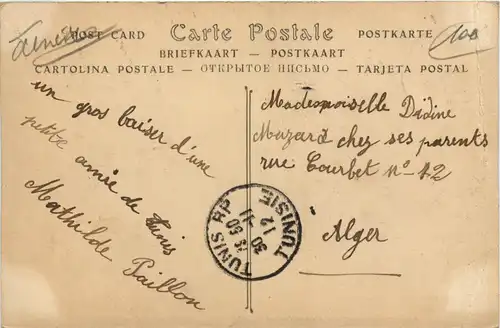 POST CARD Carte Postale POSTKARTE
BRIEFKAART — POSTKAART
CARTOLINA POSTALE — ОТКРЫТОЕ ПИСЬМО — TARJETA POSTAL
100
un gros baiser d'une
petite amie de Tunis
Mathilde Paillon
Mademoiselle Didine
Mazard chez ses parents
rue Courbet nº 42
Alger
TUNIS RP
TUNISIE
30
12